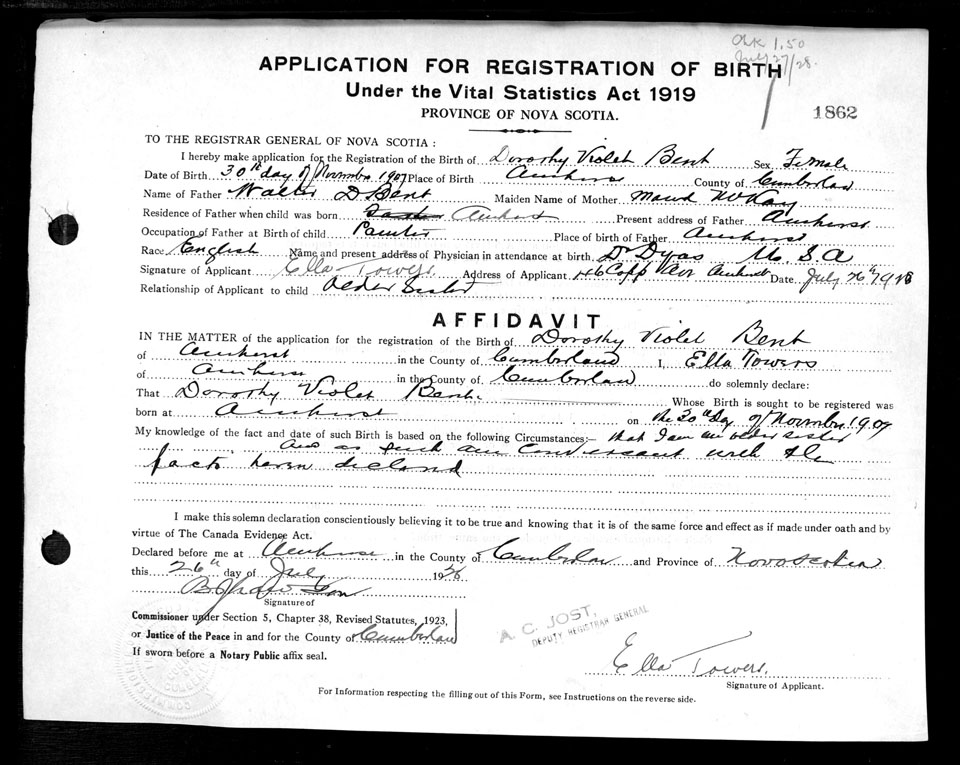 Chk 1.50
July 27/28.
APPLICATION FOR REGISTRATION OF BIRTH
Under the Vital Statistics Act 1919
PROVINCE OF NOVA SCOTIA.
1862
TO THE REGISTRAR GENERAL OF NOVA SCOTIA :
I hereby make application for the Registration of the Birth of Dorothy Violet Bent Sex Female
Date of Birth 30th day of November 1907 Place of Birth Amherst County of Cumberland
Name of Father Walter D Bent Maiden Name of Mother Maud McKay
Residence of Father when child was born Amherst Present address of Father Amherst
Occupation of Father at Birth of child Painter Place of birth of Father Amherst
Race English Name and present address of Physician in attendance at birth, Dr Dyas U. S. A
Signature of Applicant Ella Towers Address of Applicant Copp Ave Amherst Date July 26th 1928
Relationship of Applicant to child Older Sister
AFFIDAVIT
IN THE MATTER of the application for the registration of the Birth of Dorothy Violet Bent
of Amherst in the County of Cumberland I, Ella Towers
of Amherst in the County of Cumberland do solemnly declare:
That Dorothy Violet Bent Whose Birth is sought to be registered was
born at Amherst on the 30th Day of November 1907
My knowledge of the fact and date of such Birth is based on the following Circumstances:– that I am an older sister
and as such am conversant with the
facts herein declared
I make this solemn declaration conscientiously believing it to be true and knowing that it is of the same force and effect as if made under oath and by
virtue of The Canada Evidence Act.
Declared before me at Amherst in the County of Cumberland and Province of Nova Scotia
this 26th day of July 1928
Signature of
Commissioner under Section 5, Chapter 38, Revised Statutes, 1923,
or Justice of the Peace in and for the County of Cumberland
If sworn before a Notary Public affix seal.
A. C. JOST,
DEPUTY REGISTRAR GENERAL
Ella Towers.
Signature of Applicant.
For Information respecting the filling out of this Form, see Instructions on the reverse side.